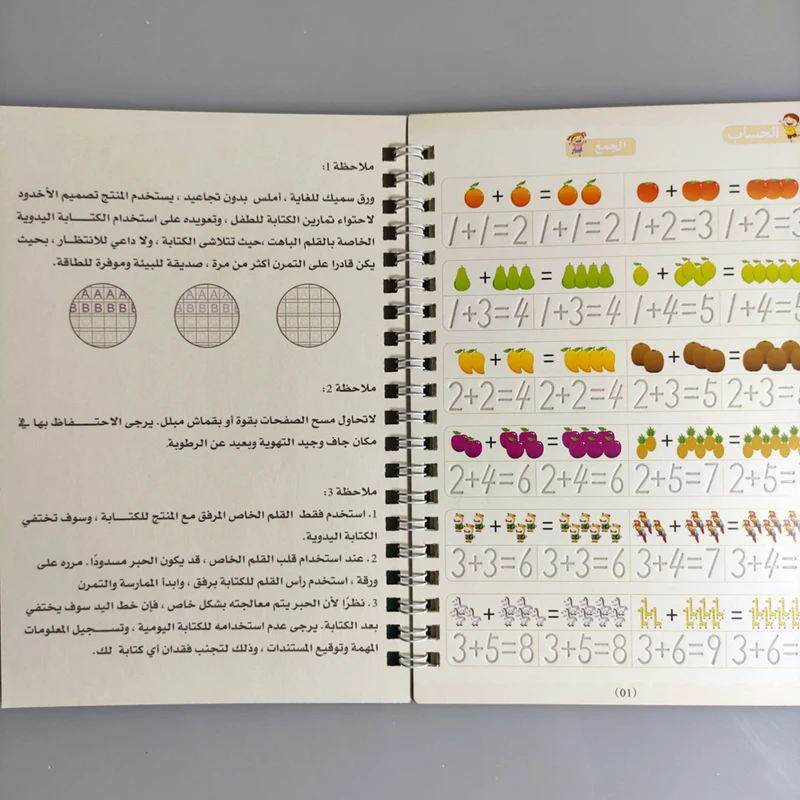 ملاحظة 1:
ورق سميك للغاية ، أملس بدون تجاعيد ، يستخدم المنتج تصميم الأخدود
لاحتواء تمارين الكتابة للطفل ، وتعويده على استخدام الكتـــابة اليدوية
الخاصة بالقلم الباهت ،حيث تتلاشى الكتابة ، ولا داعي للانتظار ، بحيث
يكن قادرا على التمرن أكثر من مرة ، صديقة للبيئة وموفرة للطاقة.
A A A A A A A A
B B B B B B B B B B
ملاحظة 2:
لاتحاول مسح الصفحات بقوة أو بقماش مبلل. يرجى الاحتــــفاظ بها في
مكان جاف وجيد التهوية وبعيد عن الرطوبة.
ملاحظة 3:
1. استخدم فقط القلم الخاص المرفق مع المنتج للكتـــابة ، وسوف تختفي
الكتابة اليدوية.
2. عند استخدام قلب القلم الخاص ، قد يكون الحبر مسدودًا. مرره على
ورقة ، استخدم رأس القلم للكتابة برفق ، وابدأ الممارسة والتمرن
3. نظرًا لأن الحبر يتم معالجته بشكل خاص ، فإن خط اليد سوف يختفي
بعد الكتابة. يرجى عدم استخدامه للكتابة اليومية ، وتســـجيل المعلومات
المهمة وتوقيع المستندات ، وذلك لتجنب فقدان أي كتابة لك.
الحساب
الجمع
+ = + =
1+1=2 1+1=2 1+2=3 1+2=3
+ = + =
1+3=4 1+3=4 1+4=5 1+4=5
+ = + =
2+2=4 2+2=4 2+3=5 2+3=
+ = + =
2+4=6 2+4=6 2+5=7 2+5=
+ = + =
3+3=6 3+3=6 3+4=7 3+4=
+ = + =
3+5=8 3+5=8 3+6=9 3+6=
(01)